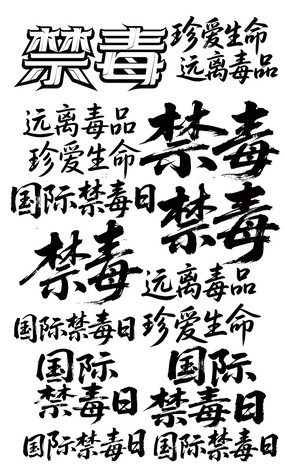 禁毒 珍爱生命
远离毒品
远离毒品
珍爱生命 禁毒
国际禁毒日 禁毒
禁毒 远离毒品
国际禁毒日 珍爱生命
国际 国际
禁毒日 禁毒日
国际禁毒日 国际禁毒日